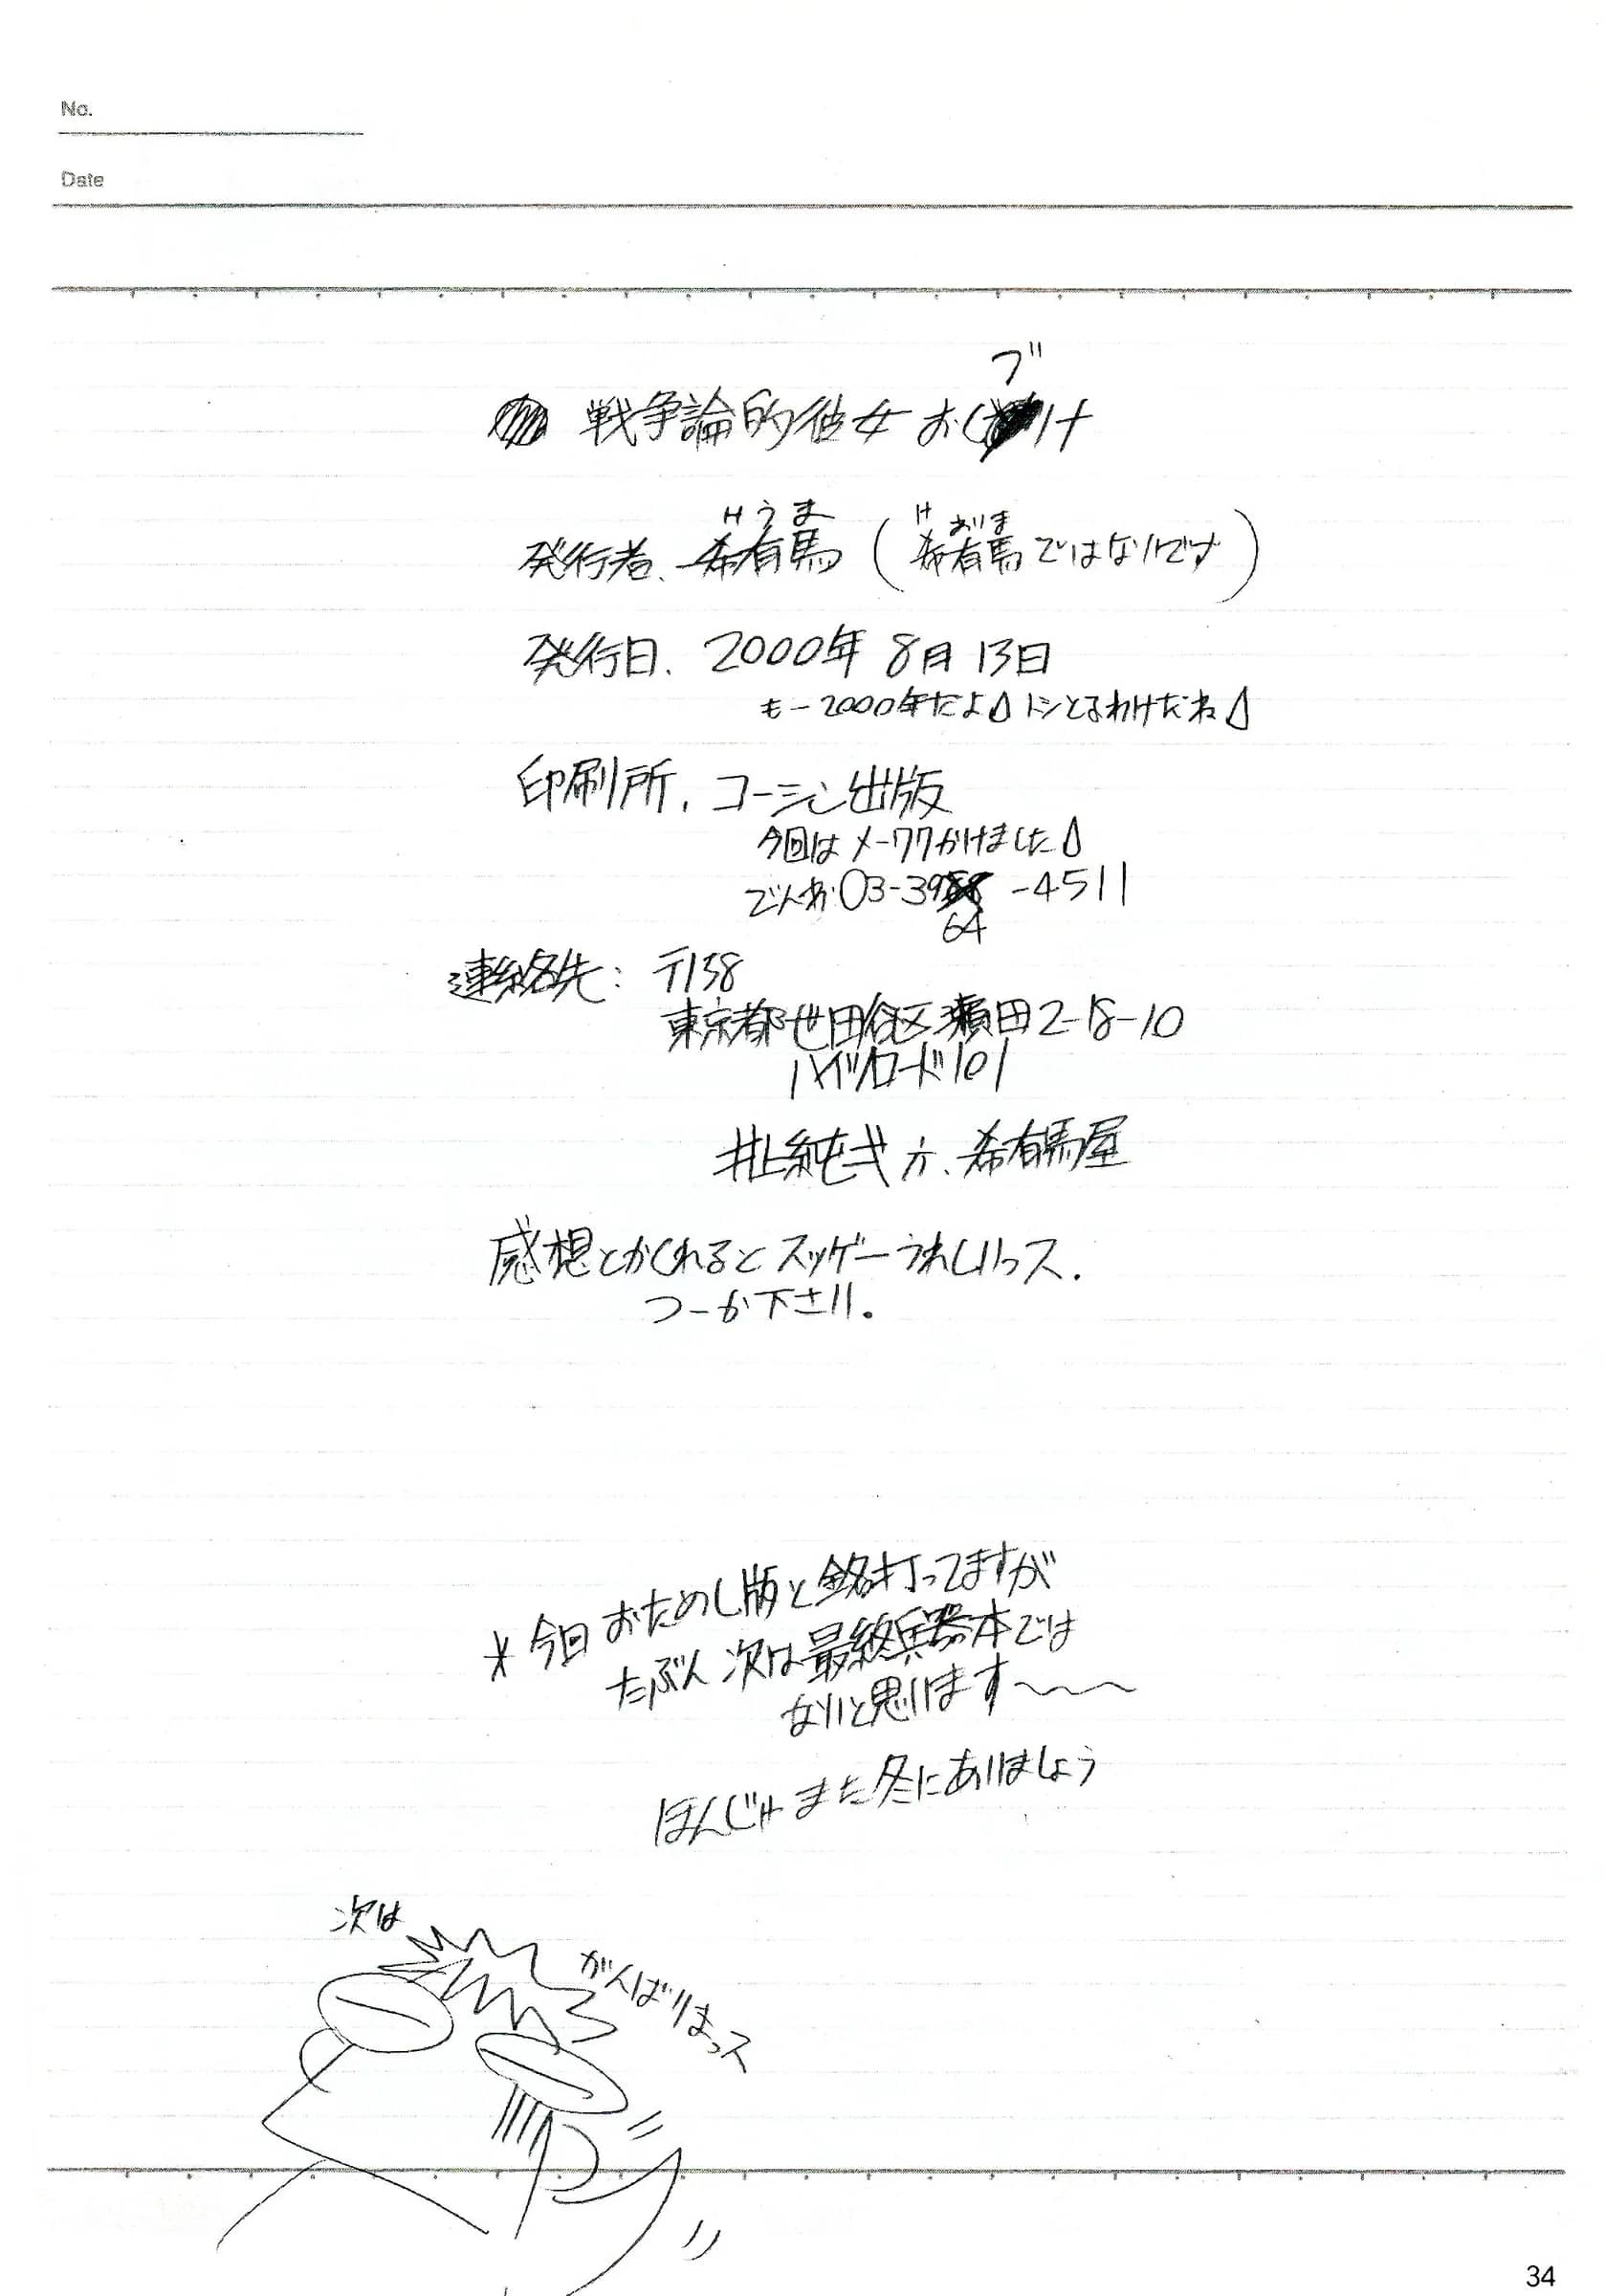 No.
Date
戦争論的彼女 おしブけ
発行者、希有馬(希有馬ではないです)
けうま
け ありま
発行日、2000年 8月 13日
もー2000年だよ トシとるわけだね
印刷所、コーシン出版
今回はメーワクかけました
でんわ 03-3964-4511
連絡先: 〒158
東京都世田谷区瀬田2-18-10
ハイツロード101
井上純弌 方、希有馬屋
感想とかくれるとスッゲーうれしいっス.
つーか下さい。
*今回おためし版と銘打ってますが
たぶん次は最終兵器本では
ないと思います〜〜〜
ほんじゃまた冬にあいましょう
次は
がんばりまっス
34